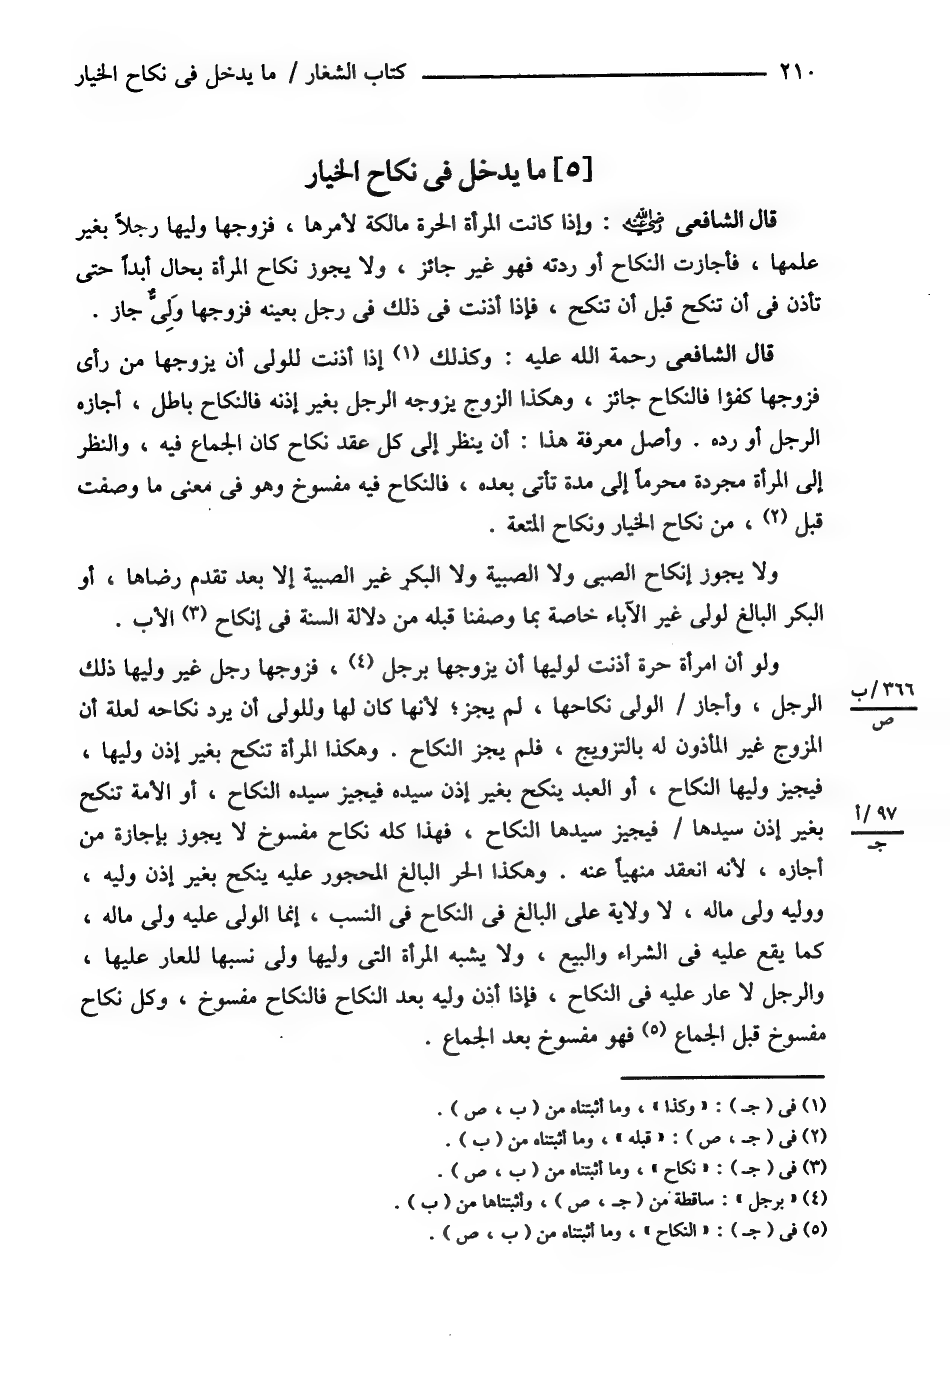 ٢١٠ ــــــــــــــــــــ كتاب الشغار / ما يدخل فى نكاح الخيار
[٥] ما يدخل فى نكاح الخيار
قال الشافعى رضي الله عنه : وإذا كانت المرأة الحرة مالكة لأمرها ، فزوجها وليها رجلاً بغير
علمها ، فأجازت النكاح أو ردته فهو غير جائز ، ولا يجوز نكاح المرأة بحال أبداً حتى
تأذن فى أن تنكح قبل أن تنكح ، فإذا أذنت فى ذلك فى رجل بعينه فزوجها وَلِىٌّ جاز .
قال الشافعى رحمة الله عليه : وكذلك (١) إذا أذنت للولى أن يزوجها من رأى
فزوجها كفؤا فالنكاح جائز ، وهكذا الزوج يزوجه الرجل بغير إذنه فالنكاح باطل ، أجازه
الرجل أو رده . وأصل معرفة هذا : أن ينظر إلى كل عقد نكاح كان الجماع فيه ، والنظر
إلى المرأة مجردة محرماً إلى مدة تأتى بعده ، فالنكاح فيه مفسوخ وهو فى معنى ما وصفت
قبل (٢) ، من نكاح الخيار ونكاح المتعة .
ولا يجوز إنكاح الصبى ولا الصبية ولا البكر غير الصبية إلا بعد تقدم رضاها ، أو
البكر البالغ لولى غير الآباء خاصة بما وصفنا قبله من دلالة السنة فى إنكاح (٣) الأب .
ولو أن امرأة حرة أذنت لوليها أن يزوجها برجل (٤) ، فزوجها رجل غير وليها ذلك
الرجل ، وأجاز / الولى نكاحها ، لم يجز؛ لأنها كان لها وللولى أن يرد نكاحه لعلة أن
المزوج غير المأذون له بالتزويج ، فلم يجز النكاح . وهكذا المرأة تنكح بغير إذن وليها ،
فيجيز وليها النكاح ، أو العبد ينكح بغير إذن سيده فيجيز سيده النكاح ، أو الأمة تنكح
بغير إذن سيدها / فيجيز سيدها النكاح ، فهذا كله نكاح مفسوخ لا يجوز بإجازة من
أجازه ، لأنه انعقد منهياً عنه . وهكذا الحر البالغ المحجور عليه ينكح بغير إذن وليه ،
ووليه ولى ماله ، لا ولاية على البالغ فى النكاح فى النسب ، إنما الولى عليه ولى ماله ،
كما يقع عليه فى الشراء والبيع ، ولا يشبه المرأة التى وليها ولى نسبها للعار عليها ،
والرجل لا عار عليه فى النكاح ، فإذا أذن وليه بعد النكاح فالنكاح مفسوخ ، وكل نكاح
مفسوخ قبل الجماع (٥) فهو مفسوخ بعد الجماع .
٣٦٦/ب
ص
٩٧/أ
جـ
(١) فى ( جـ ) : « وكذا » ، وما أثبتناه من ( ب ، ص ) .
(٢) فى ( جـ ، ص ) : « قبله » ، وما أثبتناه من ( ب ) .
(٣) فى ( جـ ) : « نكاح » ، وما أثبتناه من ( ب ، ص ) .
(٤) « برجل » : ساقطة من ( جـ ، ص ) ، وأثبتناها من ( ب ) .
(٥) فى ( جـ ) : « النكاح » ، وما أثبتناه من ( ب ، ص ) .